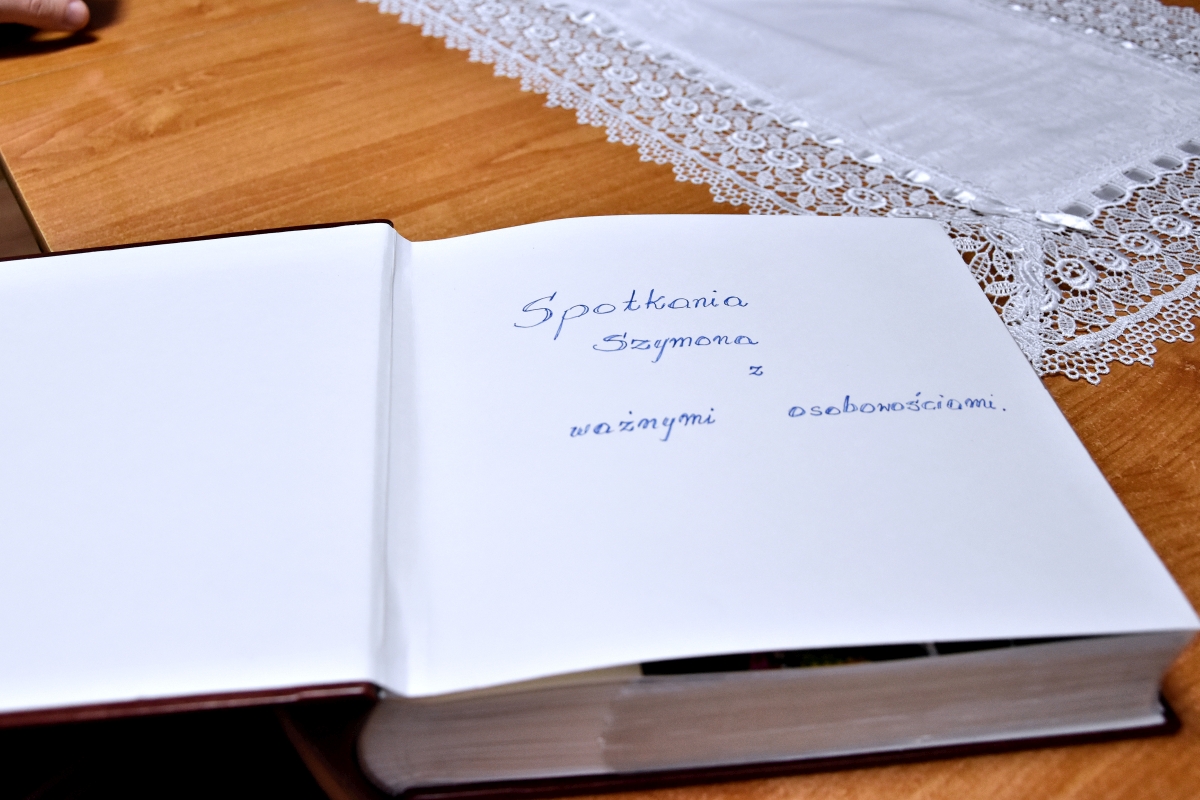 Spotkania
Szymona
z
ważnymi osobowościami.